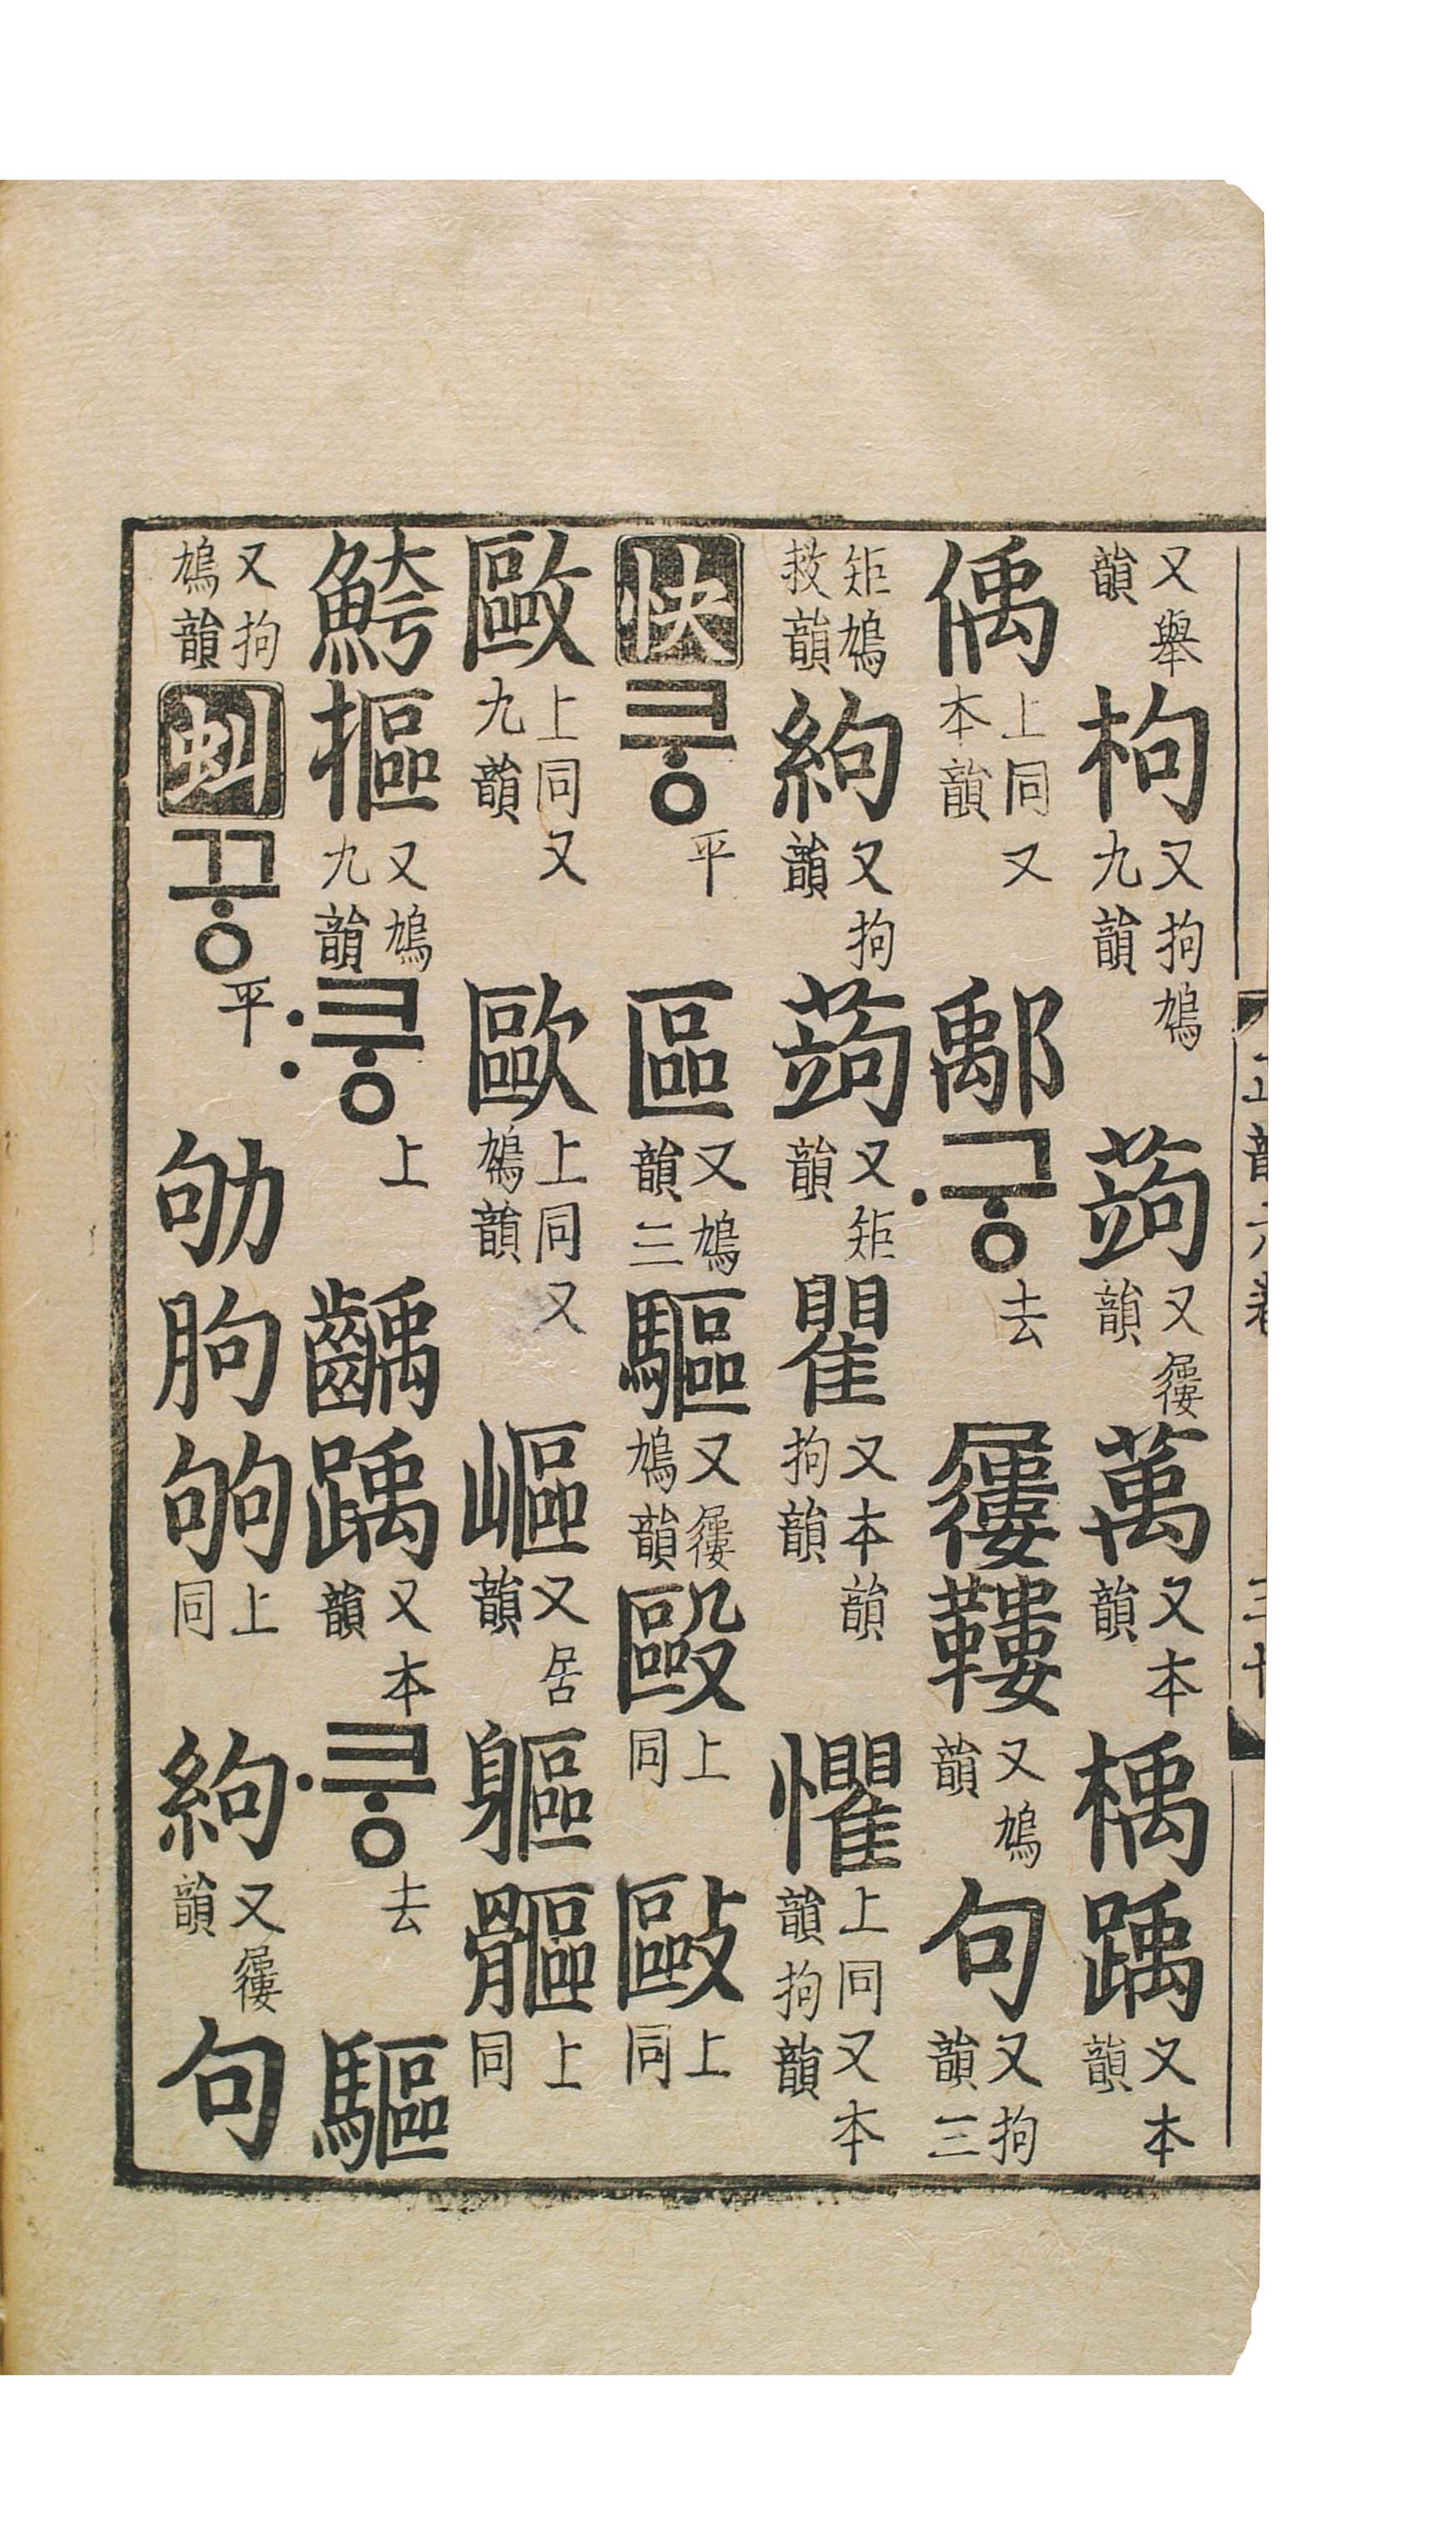 又舉韻枸又拘鳩九韻蒟又屨韻萭又本韻楀踽又本韻
偊上同又本韻鄅궁〮去屨鞻又鳩韻句又拘韻三
矩鳩救韻絇又拘韻蒟又矩韻瞿又本韻拘韻懼上同又本韻拘韻
快쿵平區又鳩韻三驅又屨鳩韻毆上同敺上同
㰶上同又九韻歐上同又鳩韻嶇又居韻軀䯫上同
鮬摳又鳩九韻쿵〯上齲踽又本韻쿵〮去驅
又拘鳩韻虯꿍平劬朐斪上同絇又屨韻句